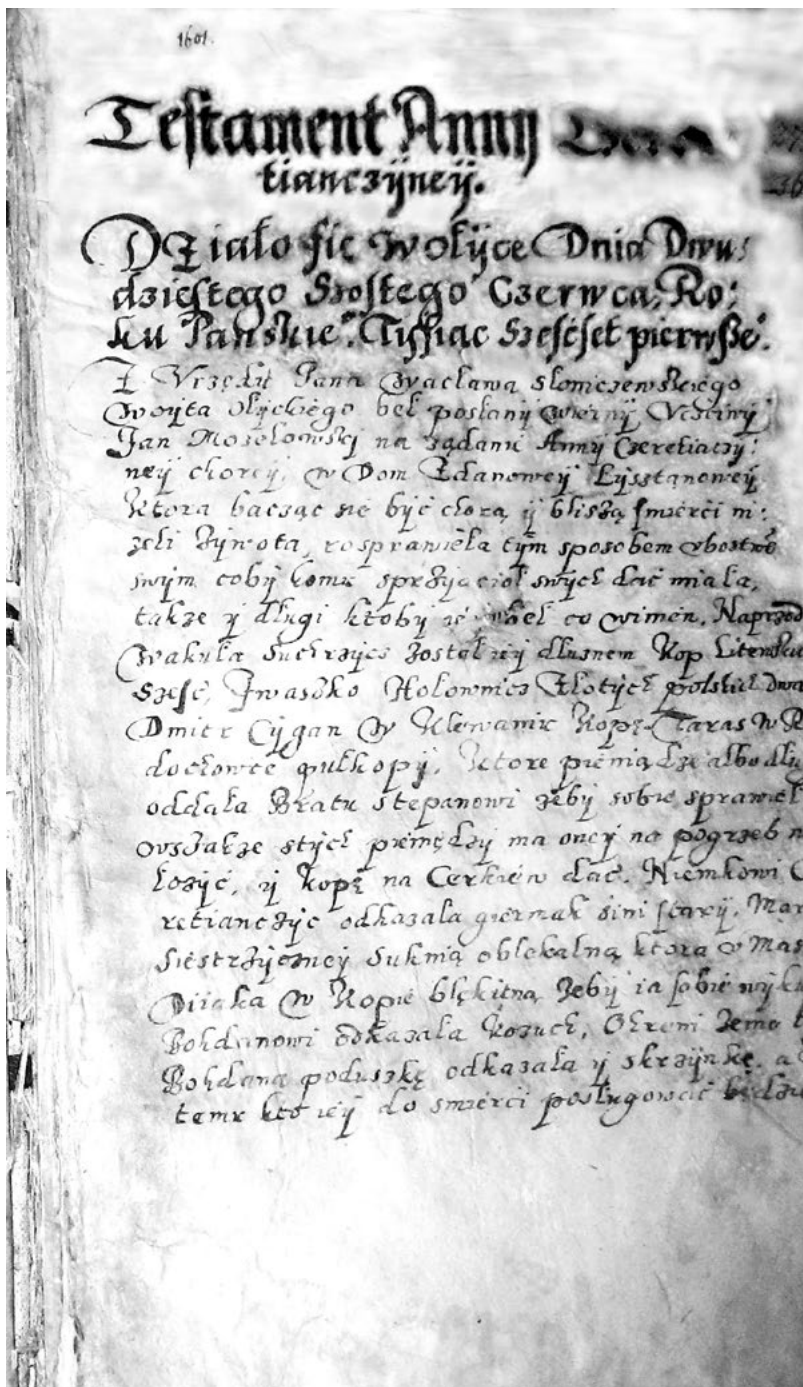 1601.
Testament Anny
tianczÿneÿ.
Działo się w ołÿce Dnia Dwu:
dziestego Szostego Czerwca, Ro:
ku Pańskie°. Tysiąc Szescset pierwsze°.
Z Vrzędu Pana Wacława słomczewskiego
woÿta ołÿckiego beł posłanÿ wiernÿ Vcziwÿ
Jan Mosełowskj na ządanie Annÿ Czeretiaczÿ:
neÿ choreÿ, w Dom Zdanoweÿ
Ktora bacząc się bÿc chorą ÿ bliszą smierci ni:
zeli zÿwota, rosprawieła tÿm sposobem vbostwē
swÿm cobÿ komu sprzÿiacioł swÿch dać miała,
takze ÿ długi ktobÿ ieÿ beł co winien. Naprzod
Wakuła został ieÿ dłuznem Kop Litewskich
Szesc, Iwaszko Hołownicz Złotÿch polskich dwa
Dmitr Cÿgan w Klewaniu Kopę. Taras w
dochowce pułkopÿ. Ktore pieniądze albo
oddała Bratu stepanowi zebÿ sobie sprawieł
wszakze stÿch pieniędzÿ ma oneÿ na pogrzeb
łozÿć, ÿ kopę na Cerkiew dać. Niemkowi
retianczÿc odkazała giermak sini starÿ.
Siestrzÿczneÿ Suknią oblekalną ktora v
Diiaka w Kopie błękitną zebÿ ia sobie
Bohdanowi odkazała kozuch,
Bohdana poduszkę odkazała ÿ skrzÿnkę.
temu kto ieÿ do smierci posługować